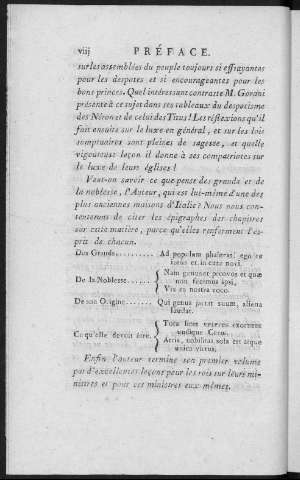 viij PRÉFACE.
sur les assemblées du peuple toujours si effrayantes
pour les despotes et si encourageantes pour les
bons princes. Quel intéressant contraste M. Gorani
présente à ce sujet dans ses tableaux du despotisme
des Néron et de celui des Titus ! Les réflexions qu'il
fait ensuite sur le luxe en général, et sur les lois
somptuaires sont pleines de sagesse, et quelle
vigoureuse leçon il donne à ses compatriotes sur
le luxe de leurs églises !
Veut-on savoir ce que pense des grands et de
la noblesse, l'Auteur, qui est lui-même d'une des
plus anciennes maisons d'Italie ? Nous nous con-
tenterons de citer les épigraphes des chapitres
sur cette matière, parce qu'elles renferment l'es-
prit de chacun.
Des Grands.......... Ad populum phaleras! ego te
intus et in cute novi.
De la Noblesse...... Nam genus et proavos et quæ
non fecimus ipsi,
Vix ea nostra voco.
De son Origine...... Qui genus jactat suum, aliena
laudat.
Ce qu'elle devoit être. Tota licet veteres exornent
undique Ceræ,
Atria, nobilitas sola est atque
unica virtus.
Enfin l'auteur termine son premier volume
par d'excellentes leçons pour les rois sur leurs mi-
nistres et pour ces ministres eux mêmes.